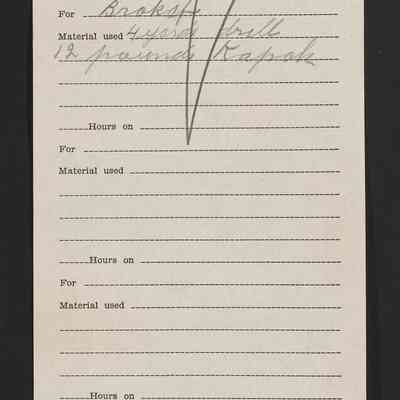 For
Material used 4 yards drill
12 pounds Kapok
Hours on
For
Material used
Hours on
For
Material used
Hours on